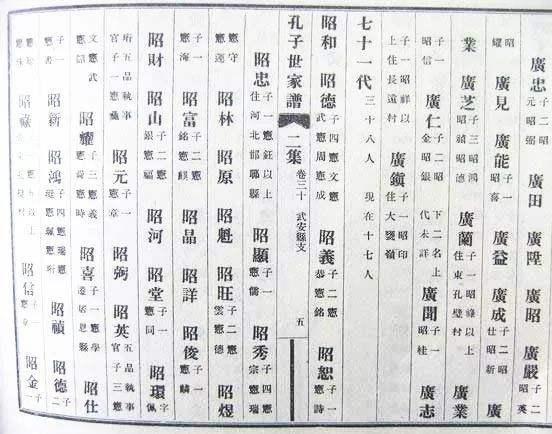 廣忠 子二昭元昭弼 廣田 廣陞 廣嚴 子二
昭耀 廣見 廣能 子一昭喜 廣益 廣成 子二昭仕昭新 廣
業 廣芝 子三昭鴻昭禎昭德 廣蘭 子一昭 以上住東孔璧村 廣業
子一昭信 廣仁 子二昭金昭銀 下二名上代未詳 廣聞 子一昭桂 廣志
子一昭祥以上住長遠村 廣鎮 子一昭印住大 嶺
七十一代 三十八人 現在十七人
昭和 昭德 子四憲文憲武憲周憲成 昭義 子二憲恭憲銘 昭恕 子一憲詩
孔子世家譜 二集 卷三十 武安縣支 五
昭忠 子一憲鈺以上住河北邯鄲縣 昭顯 子一憲儒 昭秀 子四憲宗憲瑞
憲守憲蓮 昭林 昭原 昭魁 昭旺 子二憲雲憲德 昭煜
子一憲海 昭富 子二憲銘憲麒 昭晶 昭詳 昭俊 子一憲麟
昭財 昭山 子二憲銀憲福 昭河 昭堂 子一憲同 昭環 字佩
珩五品執事官子一憲 昭元 子一憲章 昭弼 昭英 五品執事官子三憲
文憲武憲韶 昭耀 子三憲義憲 憲時 昭喜 子一憲學遷 縣 昭仕
子一憲書 昭新 昭鴻 子四憲瑞憲珽憲珮憲珩 昭禎 昭德 子二
憲珍憲珠 昭祿 以上住 村 昭信 子一憲章 昭金 子一